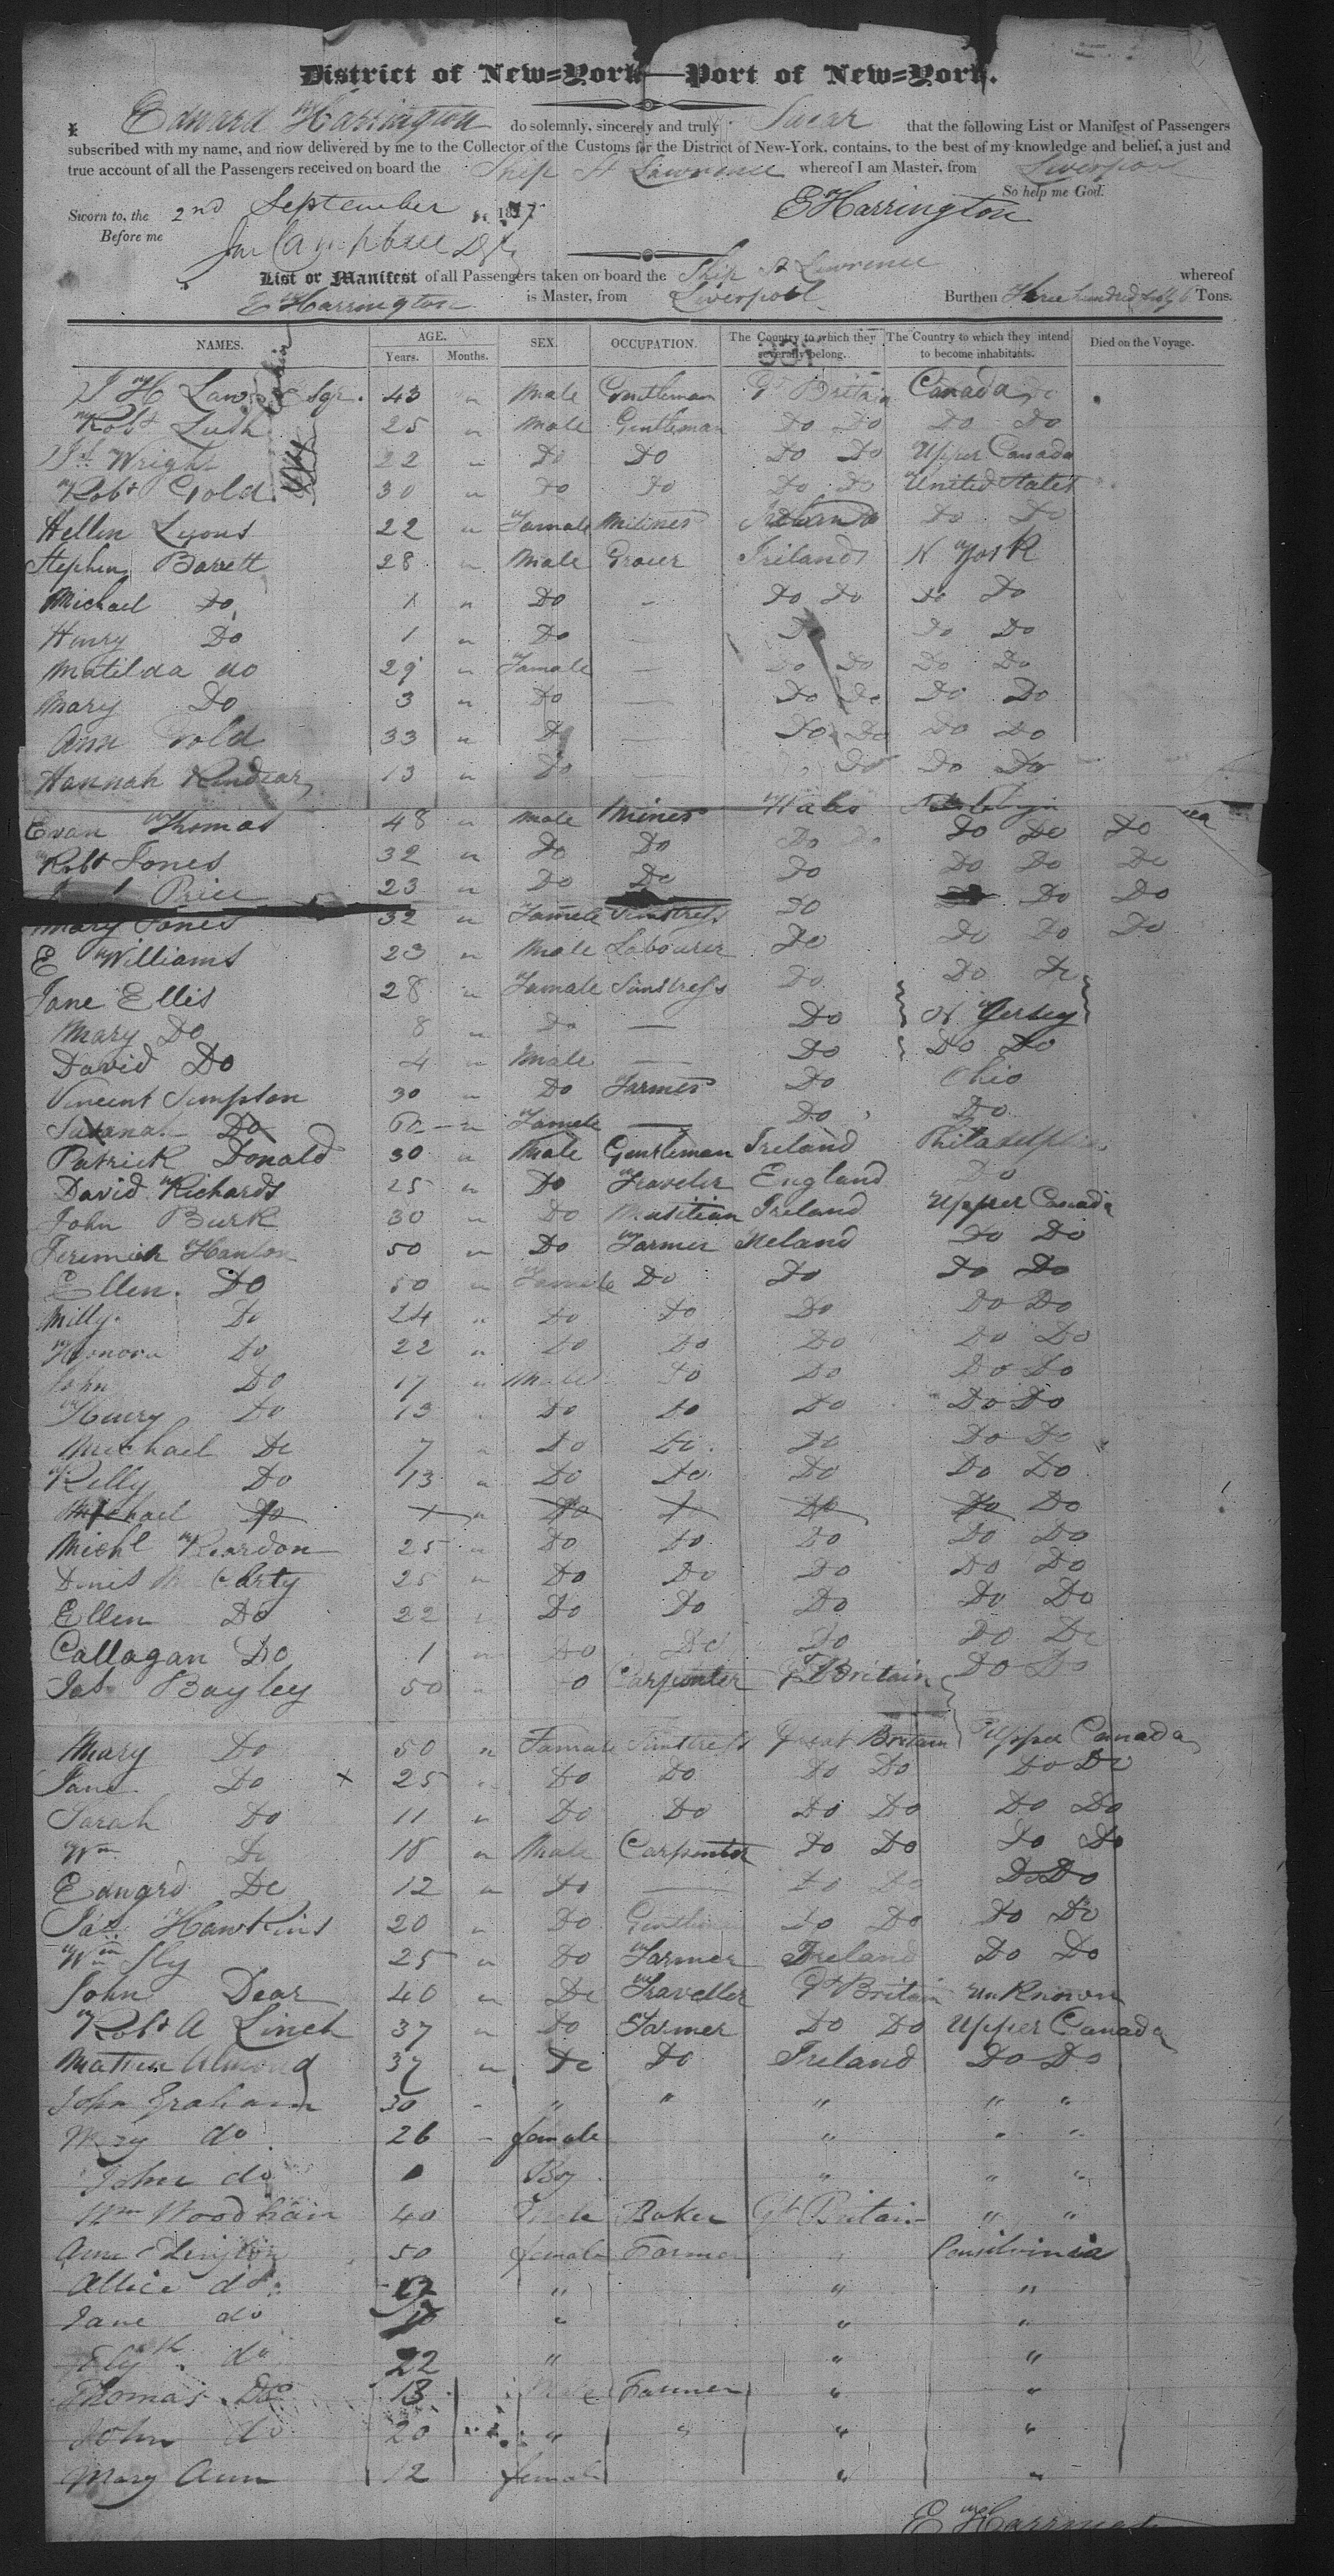 District of New=York—Port of New=York.
I Edward Harrington do solemnly, sincerely and truly Swear that the following List or Manifest of Passengers
subscribed with my name, and now delivered by me to the Collector of the Customs for the District of New-York, contains, to the best of my knowledge and belief, a just and
true account of all the Passengers received on board the Ship St Lawrence whereof I am Master, from Liverpool
So help me God.
Sworn to, the 2nd September 18 E Harrington
Before me Campbell
List or Manifest of all Passengers taken on board the Ship St Lawrence whereof
E Harrington is Master, from Liverpool Burthen Three hundred fifty 6 Tons.
NAMES. AGE. SEX. OCCUPATION. The Country to which they severally belong. The Country to which they intend to become inhabitants. Died on the Voyage.
Years. Months.
J H Law Esqr. 43 " Male Gentleman Gt Britain Canada
Robt Lush 25 " Male Gentleman Do Do Do Do
Wright 22 " Do Do Do Do Upper Canada
Robt Gold 30 " Do Do Do Do United States
Hellen Lyons 22 " Famale Miliner Ireland Do Do
Stephen Barrett 28 " Male Grocer Ireland N York
Michael Do 1 " Do - Do Do Do Do
Henry Do 1 " Do — Do Do Do
Matilda do 29 " Famale — Do Do Do Do
Mary Do 3 " Do — Do Do Do Do
Ann Gold 33 " Do — Do Do Do Do
Hannah 13 " Do Do Do Do
Evan Thomas 48 " Male Miner Wales
Robt Jones 32 " Do Do Do Do Do Do Do
Price 23 " Do Do Do Do Do Do
Mary Jones 32 " Famele Simstress Do Do Do
E Williams 23 " Male Labourer Do Do Do Do
Jane Ellis 28 " Famale Simstress Do Do Do
Mary Do 8 " Do — Do N Jersey
David Do 4 " Male — Do Do Do
Vincent Simpson 30 " Do Farmer Do Ohio
Susanah Do " Famele — Do Do
Patrick Donald 30 " Male Gentleman Ireland Philadelphia
David Richards 25 " Do Traveler England Do
John Burk 30 " Do Musitian Ireland Upper Canada
Jeremiah Hanlon 50 " Do Farmer Ireland Do Do
Ellen Do 50 " Famale Do Do Do Do
Milly Do 24 " Do Do Do Do Do
Honora Do 22 " Do Do Do Do Do
John Do 17 " Male Do Do Do Do
Henry Do 13 " Do Do Do Do Do
Michael Do 7 " Do Do Do Do Do
Kelly Do 13 " Do Do Do Do Do
Michael Do " Do Do Do Do Do
Michl Reardon 25 " Do Do Do Do Do
Denis McCarty 25 " Do Do Do Do Do
Ellen Do 22 " Do Do Do Do Do
Callagan Do 1 " Do Do Do Do Do
Jas Bayley 50 " Do Carpenter Gt Britain Do Do
Mary Do 50 " Famale Simstress Great Britain Upper Canada
Jane Do x 25 " Do Do Do Do Do Do
Sarah Do 11 " Do Do Do Do Do Do
Wm Do 18 " Male Carpenter Do Do Do Do
Edward Do 12 " Do — Do Do Do Do
Jas Hawkins 20 " Do Gentleman Do Do Do Do
Wm Sly 25 " Do Farmer Ireland Do Do
John Dear 40 " Do Traveller Gt Britain Unknown
Robt A Linch 37 " Do Farmer Do Do Upper Canada
Almond 37 " Do Do Ireland Do Do
John Graham 30 - " " " " "
Mary do 26 - female " " "
John do Boy " " "
Wm Woodhain 40 Male Baker Gt Britain " "
Ann 50 female Farmer " Pensilvinia
Allice do 17 " " "
Jane do " " "
do 22 " " "
Thomas Do 13 Male Farmer " "
John do 20 " " " "
Mary Ann 12 female " "
E Harrington